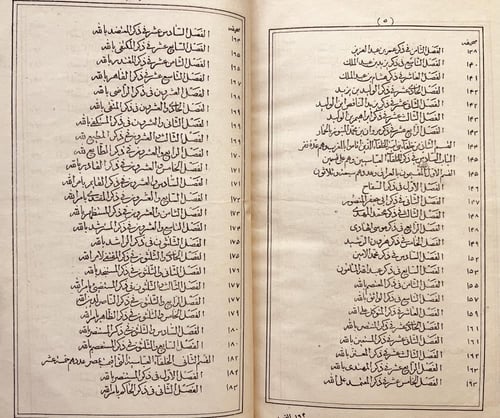 (٥)
صحيفه
١٣٩ الفصل الثامن في ذكر عمر بن عبد العزيز
١٤٠ الفصل التاسع في ذكر يزيد بن عبد الملك
١٤١ الفصل العاشر في ذكر هشام بن عبد الملك
١٤٢ الفصل الحادي عشر في ذكر الوليد بن يزيد
١٤٢ الفصل الثاني عشر في ذكر يزيد الناقص ابن الوليد
١٤٣ الفصل الثالث عشر في ذكر ابراهيم بن الوليد
١٤٣ الفصل الرابع عشر في ذكر مروان بن محمد بن مروان الحمار
القسم الثاني من الخلفاء الذين قاموا بالمغرب وهم
الباب السادس في ذكر الخلفاء العباسيين وهم على قسمين
القسم الاول المقيمون بالعراق وهم وثلاثون
١٤٦ الفصل الاول في ذكر السفاح
١٤٧ الفصل الثاني في ذكر ابي جعفر المنصور
١٤٨ الفصل الثالث في ذكر محمد المهدي
١٤٨ الفصل الرابع في ذكر موسى الهادي
١٤٩ الفصل الخامس في ذكر هرون الرشيد
١٥٢ الفصل السادس في ذكر محمد الامين
١٥٣ الفصل السابع في ذكر عبد الله المأمون
١٥٥ الفصل الثامن في ذكر المعتصم بالله
١٥٧ الفصل التاسع في ذكر الواثق بالله
١٥٨ الفصل العاشر في ذكر المتوكل على الله
١٦١ الفصل الحادي عشر في ذكر المنتصر بالله
١٦١ الفصل الثاني عشر في ذكر المستعين بالله
١٦٢ الفصل الثالث عشر في ذكر المعتز بالله
١٦٢ الفصل الرابع عشر في ذكر المهتدي بالله
١٦٣ الفصل الخامس عشر في ذكر المعتمد على الله
صحيفه
١٦٣ الفصل السادس عشر في ذكر المعتضد بالله
١٦٥ الفصل السابع عشر في ذكر المكتفي بالله
١٦٥ الفصل الثامن عشر في ذكر المقتدر بالله
١٦٧ الفصل التاسع عشر في ذكر القاهر بالله
١٦٨ الفصل العشرون في ذكر الراضي بالله
١٦٨ الفصل الحادي والعشرون في ذكر المتقي بالله
١٦٩ الفصل الثاني والعشرون في ذكر المستكفي بالله
١٦٩ الفصل الثالث والعشرون في ذكر المطيع لله
١٧٠ الفصل الرابع والعشرون في ذكر الطايع لله
١٧١ الفصل الخامس والعشرون في ذكر القادر بالله
١٧١ الفصل السادس والعشرون في ذكر القايم بامر الله
١٧٢ الفصل السابع والعشرون في ذكر المقتدي بامر الله
١٧٣ الفصل الثامن والعشرون في ذكر المستظهر بالله
١٧٤ الفصل التاسع والعشرون في ذكر المسترشد بالله
١٧٥ الفصل الثلثون في ذكر الراشد بالله
١٧٥ الفصل الحادي والثلثون في ذكر المقتفي لامر الله
١٧٦ الفصل الثاني والثلثون في ذكر المستنجد بالله
١٧٦ الفصل الثالث والثلثون في ذكر المستضيء بامر الله
١٧٧ الفصل الرابع والثلثون في ذكر الناصر لدين الله
١٧٩ الفصل الخامس والثلثون في ذكر الظاهر بامر الله
١٨٠ الفصل السادس والثلثون في ذكر المستنصر بالله
١٨٠ الفصل السابع والثلثون في ذكر المستعصم بالله
١٨٢ القسم الثاني في الخلفاء العباسية الذين في مصر عددهم خمسة عشر
١٨٢ الفصل الاول في ذكر المستنصر بالله
١٨٣ الفصل الثاني في ذكر الحاكم بامر الله